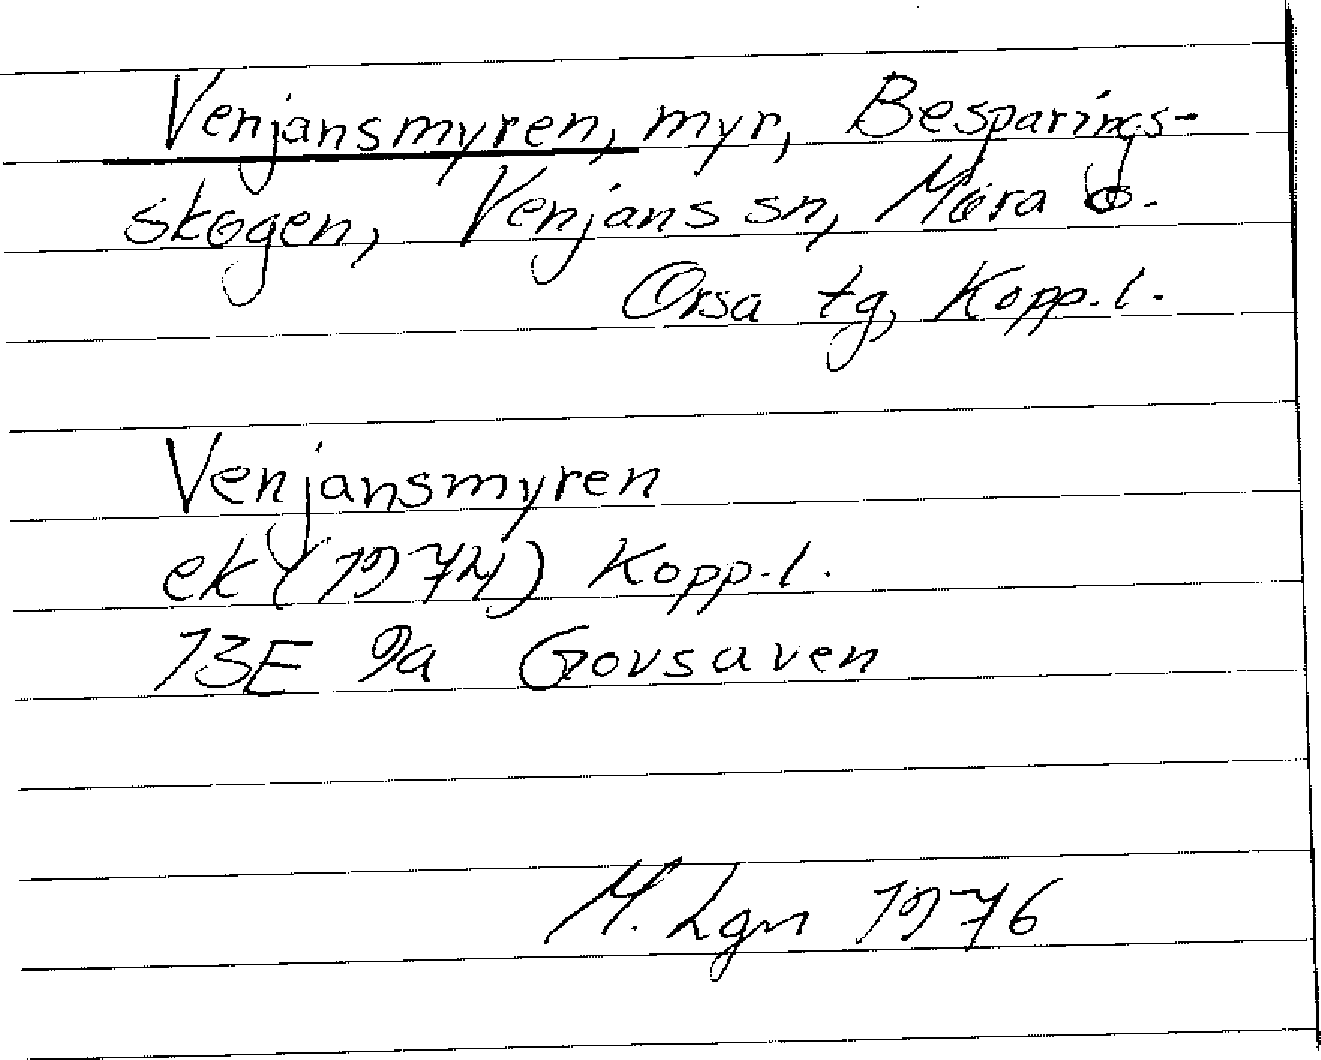 Venjansmyren, myr, Besparings-
skogen, Venjans sn, Mora o.
Orsa tg, Kopp. l.
Venjansmyren
ek (1974) Kopp. l.
13E 9a Govsaven
M. Lgn 1976